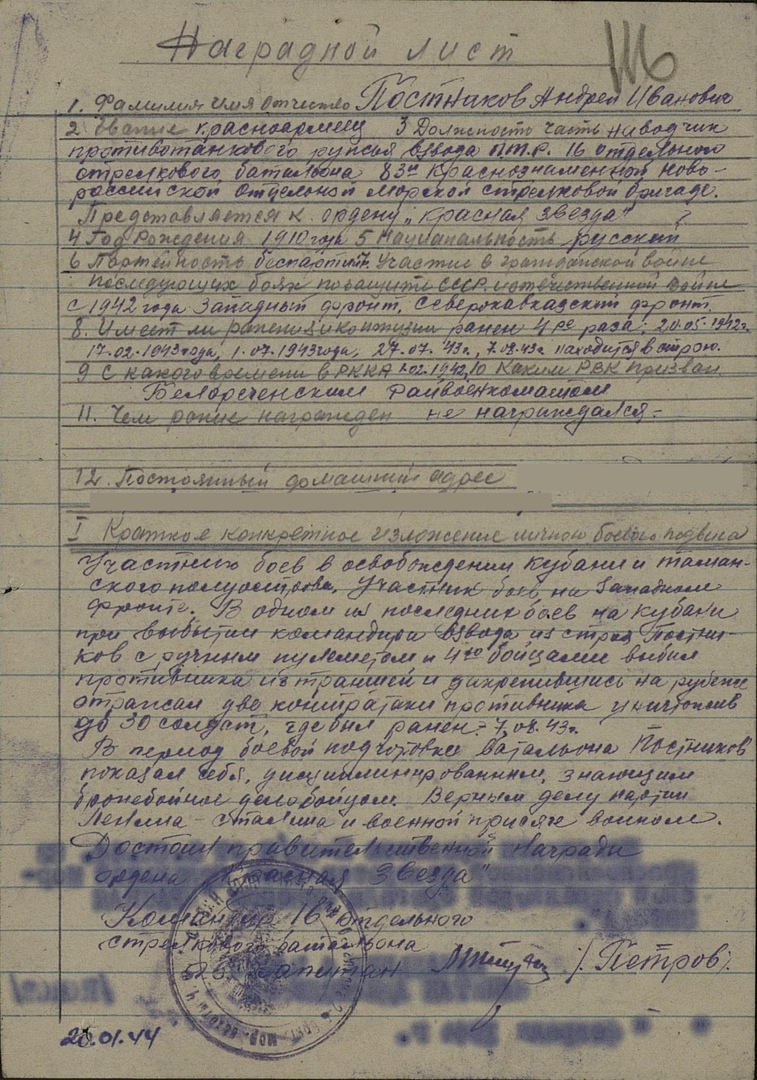 Наградной лист
1. Фамилия имя отчество Постников Андрей Иванович
2 Звание красноармеец 3 Должность часть наводчик
противотанкового ружья взвода П.Т.Р. 16 отдельного
стрелкового батальона 83й Краснознаменной Ново-
российской отдельной морской стрелковой бригаде.
Представляется к ордену „Красная звезда"
4 Год рождения 1910 года 5 Национальность русский
6 Партейность беспартит. Участие в гражданской войне
последующих боях по защите СССР и отечественной войне
с 1942 года Западный фронт, Северокавкадский фронт.
8. Имеет ли ранения и контузии ранен 4ре раза: 20.05.1942г.
17.02.1943года, 1.07.1943года, 27.07.43г., 7.08.43г. находится в строю.
9 С какого времени в РККА 1.02.1942, 10 Каким РВК призван
Белореченским Райвоенкоматом
11. Чем ранее награжден не награждался.-
12. Постоянный домашний адрес
I Краткое конкретное изложение личного боевого подвига
Участник боев в освобождении Кубани и таман-
ского полуострова. Участник боев на Западном
фронте. В одном из последних боев на Кубани
при выбытии командира взвода из строя Постни-
ков с ручным пулеметом и 4мя бойцами выбил
противника из траншей и укрепившись на рубеже
отразил две контратаки противника уничтожив
до 30 солдат, где был ранен - 7.08.43г.
В период боевой подготовки батальона Постников
показал себя, дисциплинированным, знающим
бронебойное дело бойцом. Верным делу партии
Ленина - Сталина и военной присяге воином.
Достоин правительственной награды
ордена „Красная Звезда"
Командир 16 отдельного
стрелкового батальона
капитан /Петров/.
20.01.44